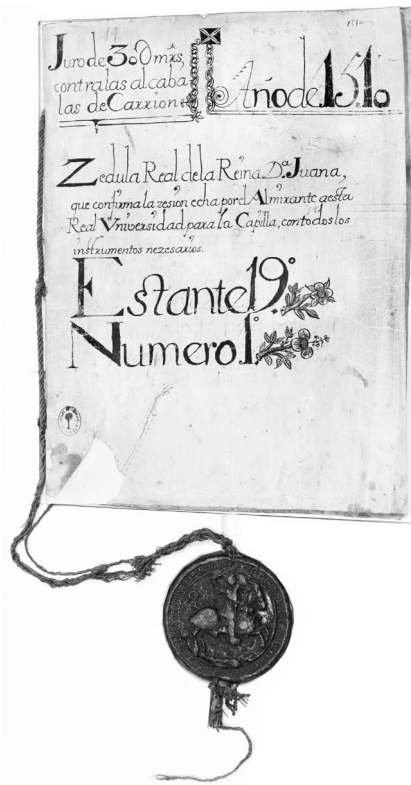 F-3-6-3
1510
Juro de 30U mrs,
contra las alcaba
las de Carrion
Año de 1510
Zedula Real de la Reina D.ª Juana,
que confirma la zesion echa por el Almirante a esta
Real Vniversidad para la Capilla, con todos los
instrumentos nezesarios.
Estante 19º.
Numero 1º.